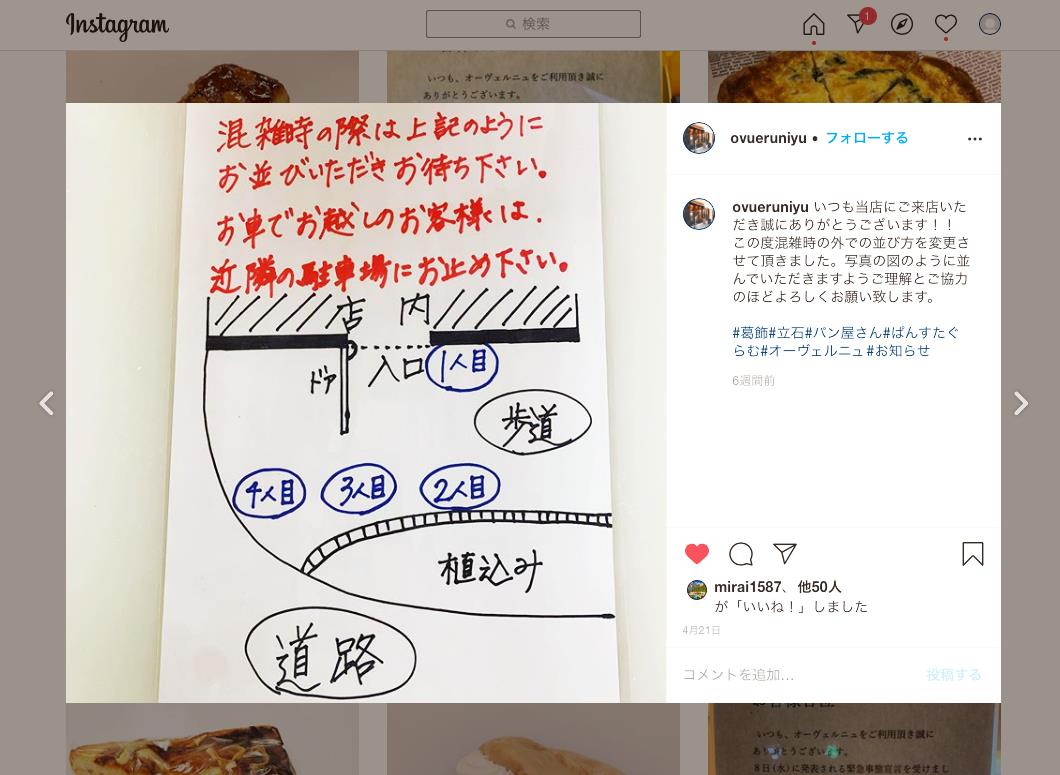 Instagram
検索
1
いつも、オーヴェルニュをご利用頂き誠に
ありがとうございます。
混雑時の際は上記のように
お並びいただきお待ち下さい。
お車でお越しのお客様は、
近隣の駐車場にお止め下さい。
店内
ドア
入口
1人目
歩道
4人目
3人目
2人目
植込み
道路
ovueruniyu • フォローする
ovueruniyu いつも当店にご来店いた
だき誠にありがとうございます！！
この度混雑時の外での並び方を変更さ
せて頂きました。写真の図のように並
んでいただきますようご理解とご協力
のほどよろしくお願い致します。
#葛飾#立石#パン屋さん#ぱんすたぐ
らむ#オーヴェルニュ#お知らせ
6週間前
mirai1587、他50人
が「いいね！」しました
4月21日
コメントを追加...
投稿する
いつも、オーヴェルニュをご利用頂き誠に
ありがとうございます。
8日(水)に発表される緊急事態宣言を受けまし